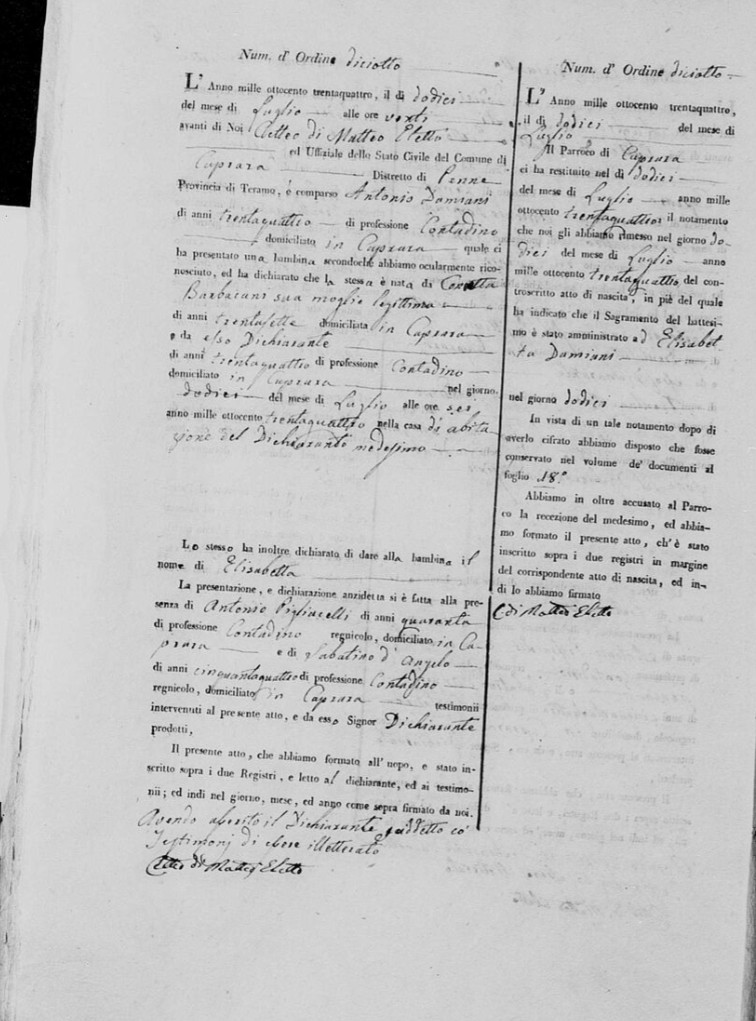 Num. d' Ordine diciotto
L' Anno mille ottocento trentaquattro, il di dodici
del mese di Luglio alle ore venti
avanti di Noi di Matteo Eletto
ed Uffiziale dello Stato Civile del Comune di
Caprara Distretto di Penne
Provincia di Teramo, è comparso Antonio Damiani
di anni trentaquattro di professione Contadino
domiciliato in Caprara quale ci
ha presentato una bambina secondochè abbiamo ocularmente rico-
nosciuto, ed ha dichiarato che la stessa è nata di
Barbacani sua moglie legittima
di anni trentasette domiciliata in Caprara
e da esso Dichiarante
di anni trentaquattro di professione Contadino
domiciliato in Caprara nel giorno
dodici del mese di Luglio alle ore sei
anno mille ottocento trentaquattro nella casa di abita
zione del Dichiarante medesimo
Lo stesso ha inoltre dichiarato di dare alla bambina il
nome di Elisabetta
La presentazione, e dichiarazione anzidetta si è fatta alla pre-
senza di Antonio Pigliacelli di anni quaranta
di professione Contadino regnicolo, domiciliato in Ca-
prara e di Sabatino d' Angelo
di anni cinquantaquattro di professione Contadino
regnicolo, domiciliato in Caprara testimonii
intervenuti al presente atto, e da esso Signor Dichiarante
prodotti,
Il presente atto, che abbiamo formato all' uopo, è stato in-
scritto sopra i due Registri, e letto al dichiarante, ed ai testimo-
nii; ed indi nel giorno, mese, ed anno come sopra firmato da noi.
Avendo asserito il Dichiarante suddetto co'
Testimonj di essere illetterato
di Matteo Eletto
Num. d' Ordine diciotto
L' Anno mille ottocento trentaquattro,
il di dodici del mese di
Luglio
Il Parroco di Caprara
ci ha restituito nel di dodici
del mese di Luglio anno mille
ottocento trentaquattro il notamento
che noi gli abbiamo rimesso nel giorno do-
dici del mese di Luglio anno
mille ottocento trentaquattro, del con-
troscritto atto di nascita, in piè del quale
ha indicato che il Sagramento del battesi-
mo è stato amministrato ad Elisabet-
ta Damiani
nel giorno dodici
In vista di un tale notamento dopo di
averlo cifrato abbiamo disposto che fosse
conservato nel volume de' documenti al
foglio 18.°
Abbiamo in oltre accusato al Parro-
co la recezione del medesimo, ed abbia-
mo formato il presente atto, ch' è stato
inscritto sopra i due registri in margine
del corrispondente atto di nascita, ed in-
di lo abbiamo firmato
di Matteo Eletto